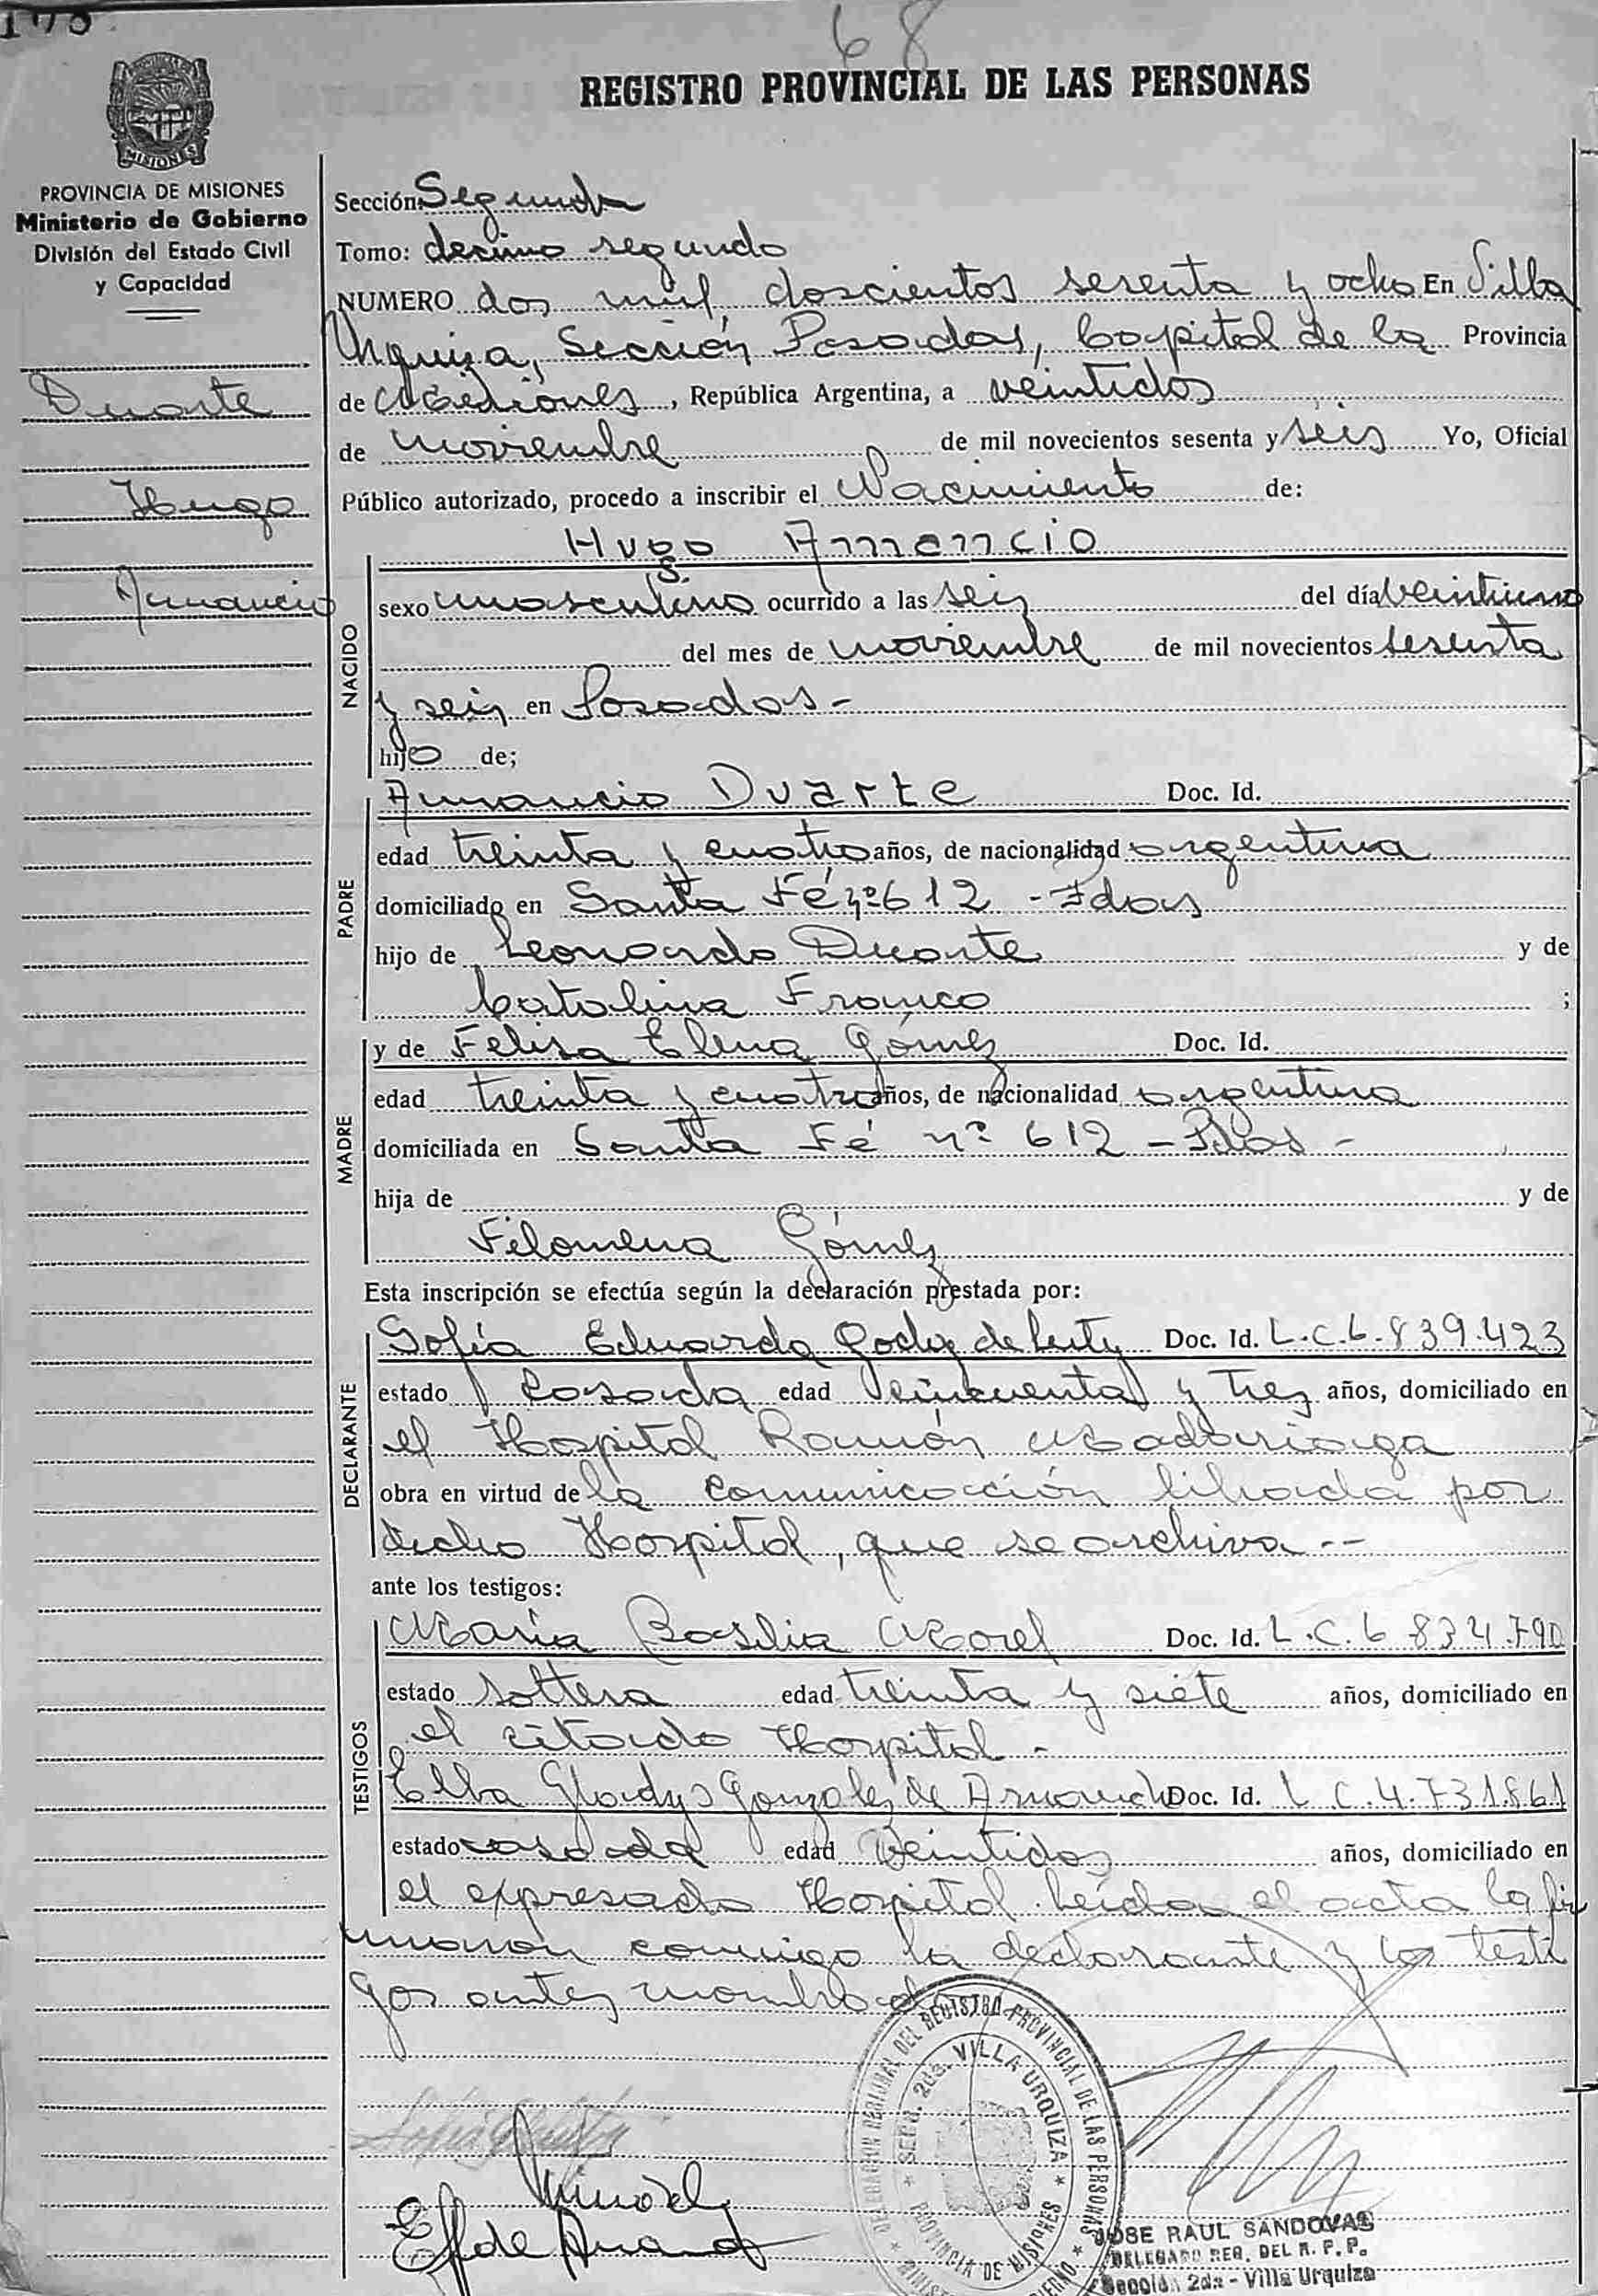 68
REGISTRO PROVINCIAL DE LAS PERSONAS
MISIONES
PROVINCIA DE MISIONES
Ministerio de Gobierno
División del Estado Civil
y Capacidad
Duarte
Hugo
Amancio
Sección: Segunda
Tomo: decimo segundo
NUMERO dos mil doscientos sesenta y ocho En Villa
Urquiza, Sección Posadas, Capital de la Provincia
de Misiones, República Argentina, a veintidos
de noviembre de mil novecientos sesenta y seis Yo, Oficial
Público autorizado, procedo a inscribir el Nacimiento de:
Hugo Amancio
NACIDO
sexo masculino ocurrido a las seis del día veintiuno
del mes de noviembre de mil novecientos sesenta
y seis en Posadas -
hijo de;
PADRE
Amancio Duarte Doc. Id.
edad treinta y cuatro años, de nacionalidad argentina
domiciliado en Santa Fé nº 612 - Pdas
hijo de Leonardo Duarte y de
Catalina Franco ;
MADRE
y de Felisa Elena Gómez Doc. Id.
edad treinta y cuatro años, de nacionalidad argentina
domiciliada en Santa Fé nº 612 - Pdas -
hija de y de
Filomena Gómez
Esta inscripción se efectúa según la declaración prestada por:
DECLARANTE
Sofía Eduarda Godoy de Doc. Id. L.C. 6.839.423
estado casada edad cincuenta y tres años, domiciliado en
el Hospital Ramón Madariaga
obra en virtud de la comunicación librada por
dicho Hospital, que se archiva --
ante los testigos:
TESTIGOS
María Basilia Morel Doc. Id. L.C. 6.834.790
estado soltera edad treinta y siete años, domiciliado en
el citado Hospital -
Elba Gladys Gonzalez de Doc. Id. L.C. 4.731.861
estado casada edad veintidos años, domiciliado en
el expresado Hospital. Leída el acta la fir
maron conmigo la declarante y los testi
gos antes
DELEGACION REGIONAL DEL REGISTRO PROVINCIAL DE LAS PERSONAS
SECC. 2da. VILLA URQUIZA
PROVINCIA DE MISIONES
JOSE RAUL SANDOVAS
DELEGADO REG. DEL R. P. P.
Sección 2da - Villa Urquiza